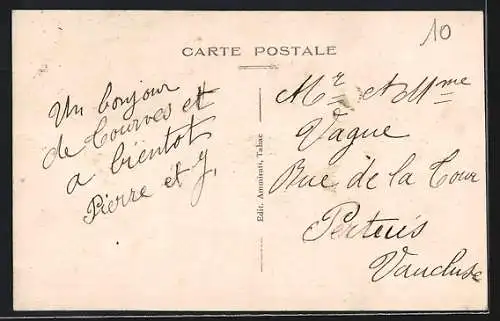 10
CARTE POSTALE
Un bonjour
de Tourves et
a bientot
Pierre et y,
Edit. Ammirati, Tabac
Mr et Mme
Vague
Rue de la Tour
Pertuis
Vaucluse